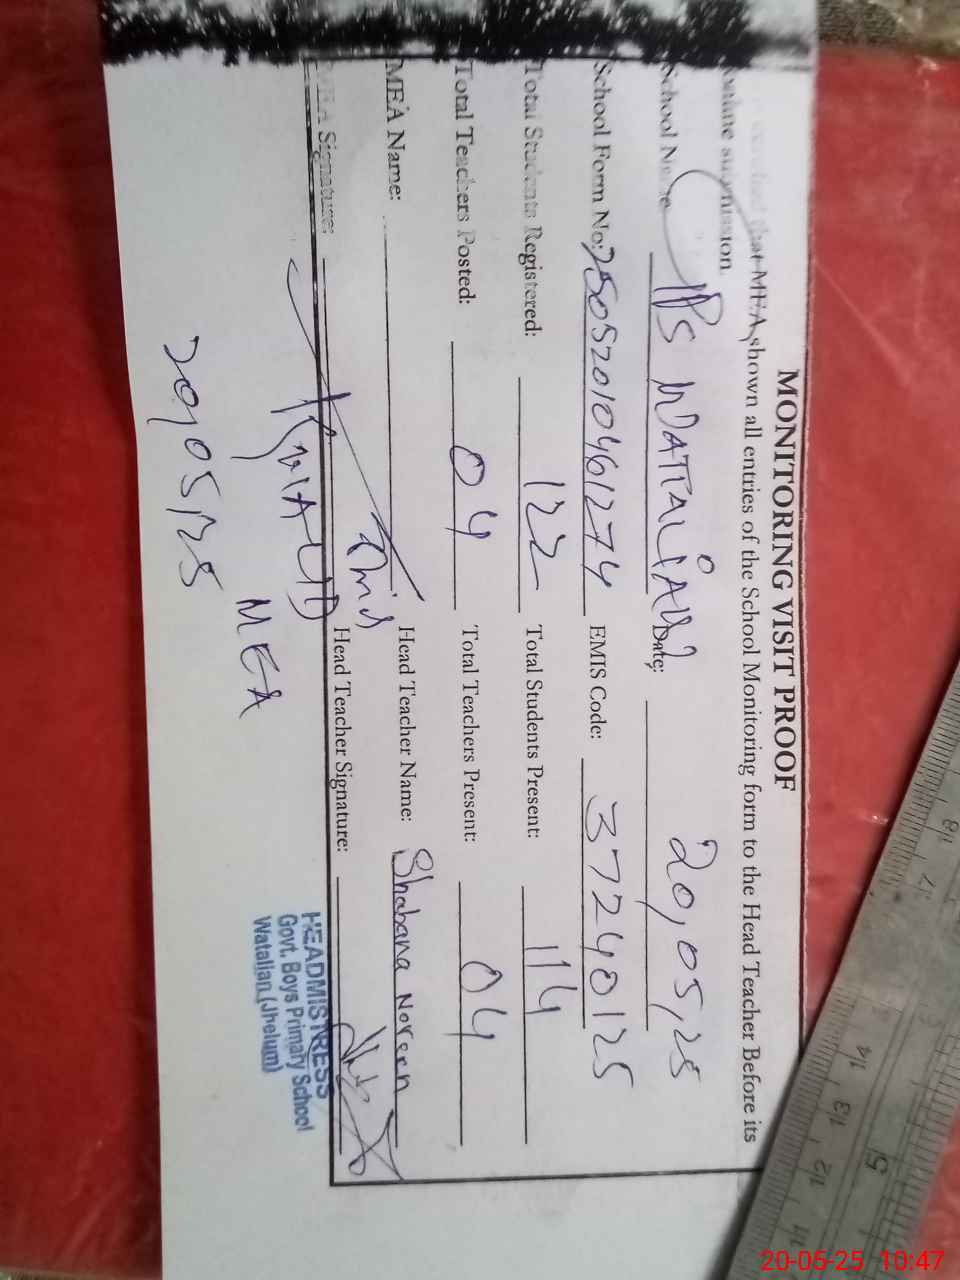 MONITORING VISIT PROOF
that MEA shown all entries of the School Monitoring form to the Head Teacher Before its
online submission.
School Name Date: 20,05,25
School Form No: 25052010461274 EMIS Code: 37240125
Total Students Registered: 122 Total Students Present: 114
Total Teachers Posted: 04 Total Teachers Present: 04
MEA Name: Head Teacher Name: Shabana Noreen
MEA Signature: Head Teacher Signature:
MEA
20,05,25
HEADMISTRESS
Govt. Boys Primary School
Watalian (Jhelum)
8
7
4
3
2
1
5
20-05-25 10:47